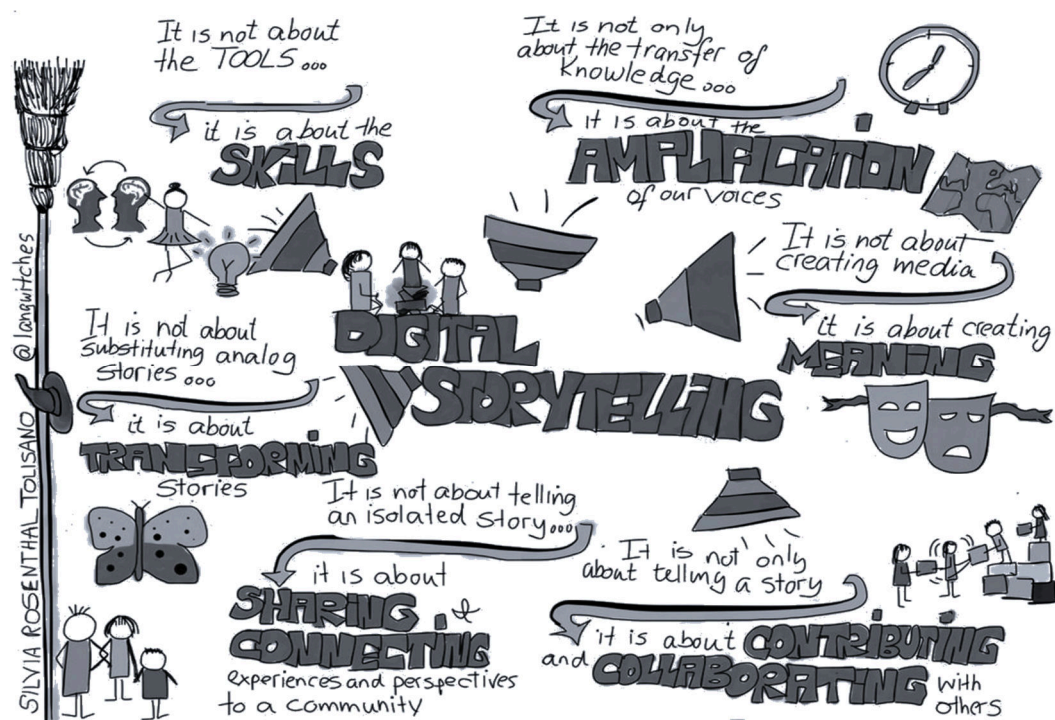 It is not about
the TOOLS...
it is about the
SKILLS
It is not only
about the transfer of
knowledge...
it is about the
AMPLIFICATION
of our voices
It is not about
creating media
it is about creating
MEANING
DIGITAL
STORYTELLING
It is not about
substituting analog
stories...
it is about
TRANSFORMING
Stories
It is not about telling
an isolated story...
it is about
SHARING &
CONNECTING
experiences and perspectives
to a community
It is not only
about telling a story
it is about CONTRIBUTING
and COLLABORATING with
others
SILVIA ROSENTHAL TOLISANO @langwitches